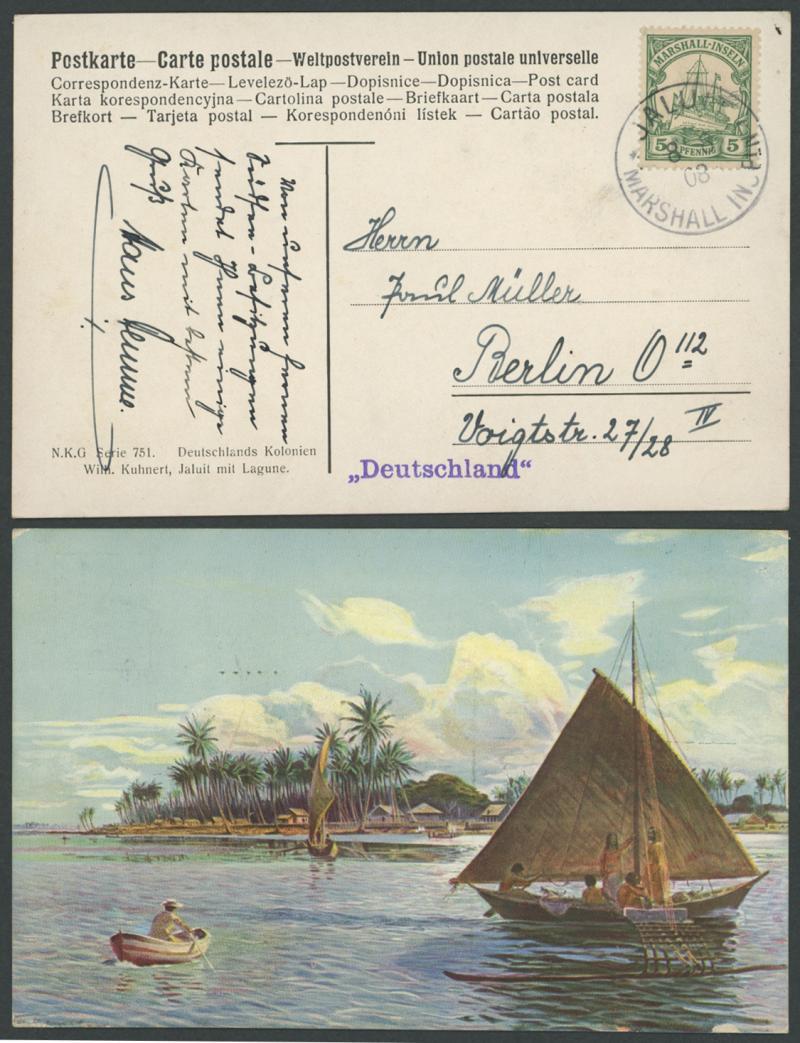 Postkarte—Carte postale—Weltpostverein—Union postale universelle
Correspondenz-Karte—Levelező-Lap—Dopisnice—Dopisnica—Post card
Karta korespondencyjna—Cartolina postale—Briefkaart—Carta postala
Brefkort — Tarjeta postal — Korespondenóni lístek — Cartào postal.
MARSHALL-INSELN
5 PFENNIG 5
JALUIT
8
08
MARSHALL INSELN
Von unseren fernen
Südsee-Besitzungen
sendet Ihnen einige
Karten mit bestem
Gruß Hans
Herrn
Paul Müller
Berlin O 112
Voigtstr. 27/28 IV
N.K.G Serie 751. Deutschlands Kolonien
Wilh. Kuhnert, Jaluit mit Lagune.
„Deutschland“